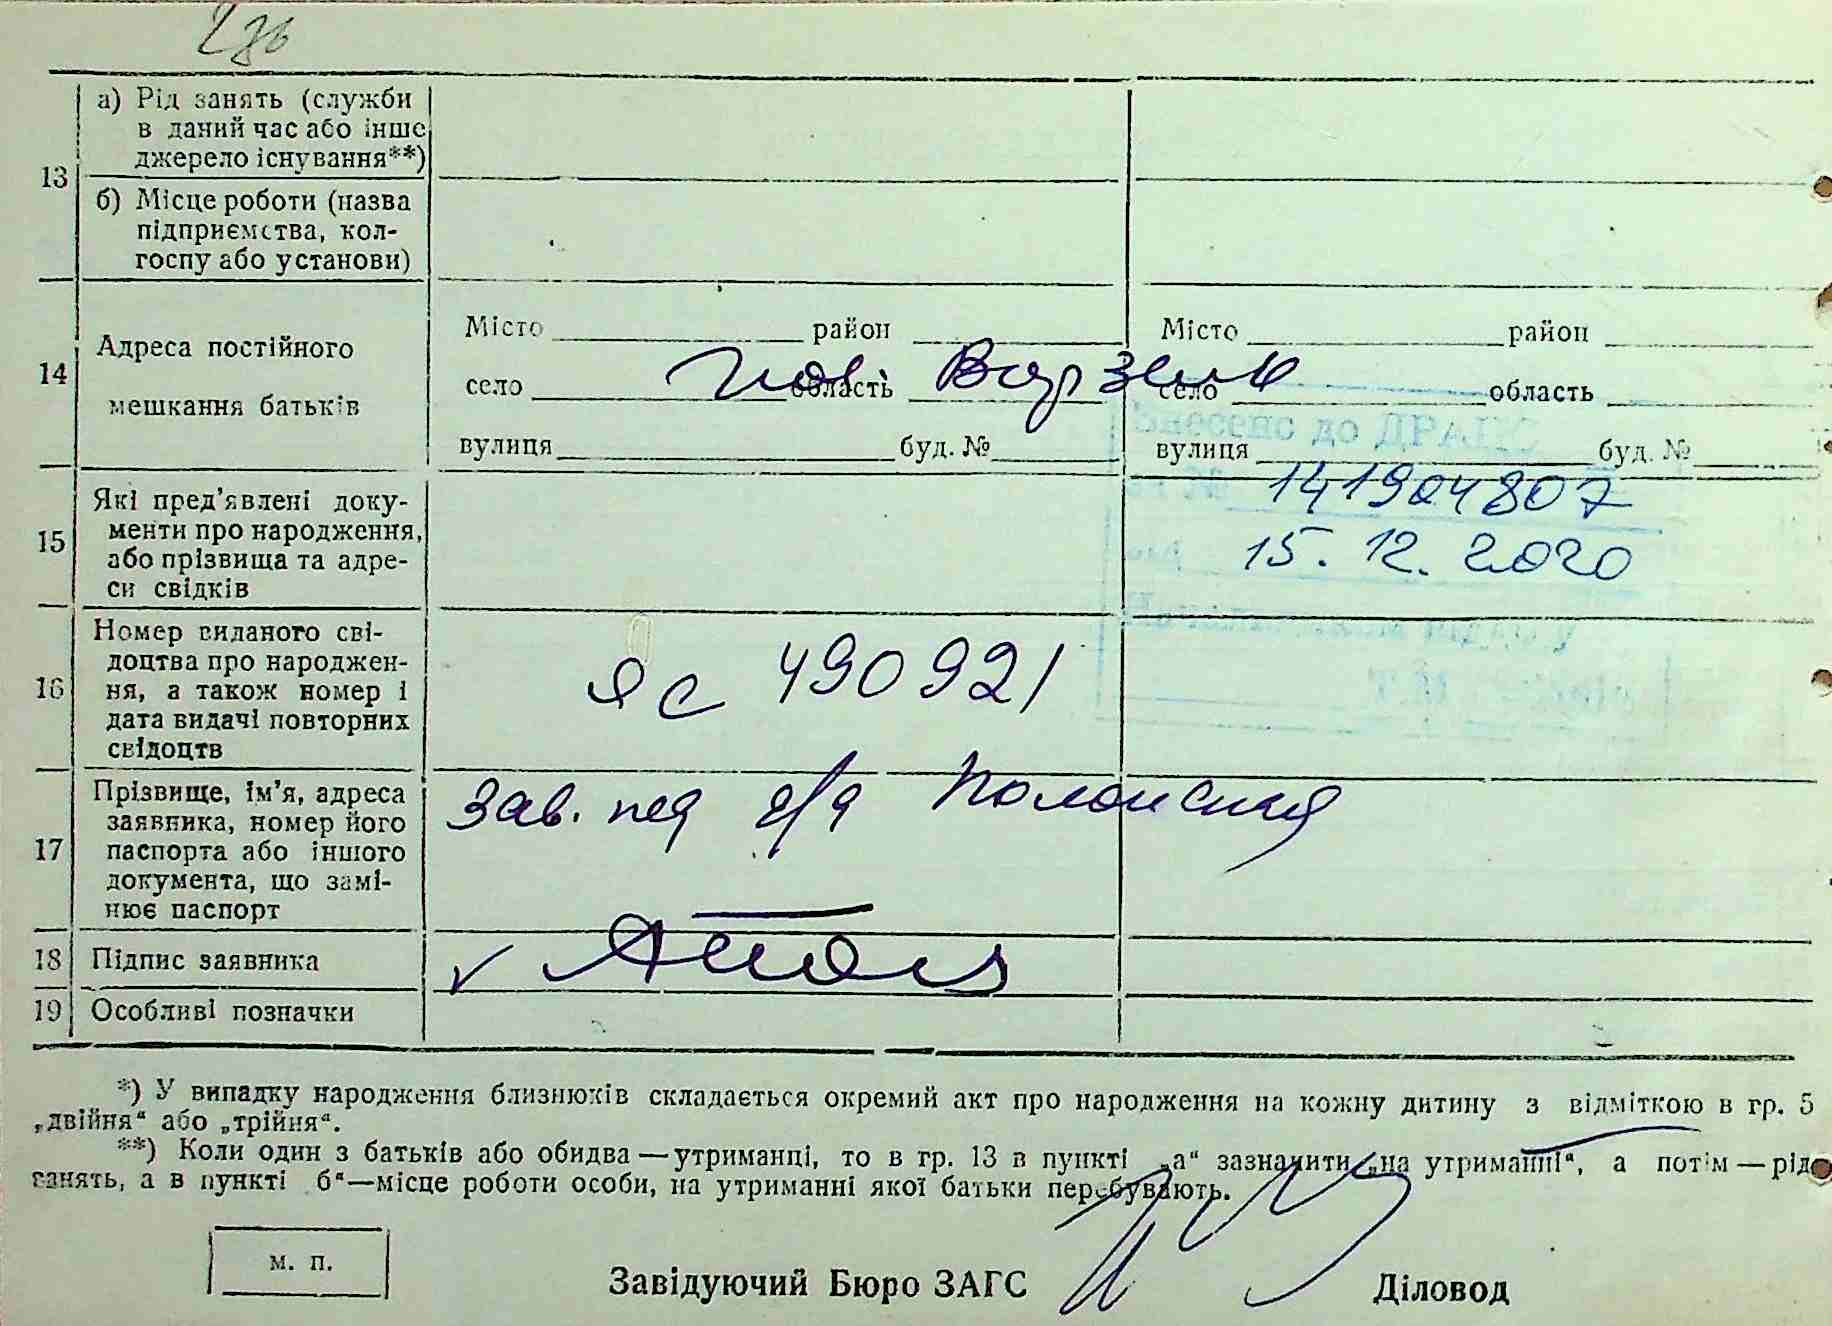 а) Рід занять (служби
в даний час або інше
джерело існування**)
13
б) Місце роботи (назва
підприємства, кол-
госпу або установи)
Місто район Місто район
14 Адреса постійного
мешкання батьків
село область село область
вулиця буд. № вулиця буд. №
Внесено до ДРАЦС
141904807
15.12.2020
15 Які пред'явлені доку-
менти про народження,
або прізвища та адре-
си свідків
16 Номер виданого сві-
доцтва про народжен-
ня, а також номер і
дата видачі повторних
свідоцтв
ЯС 490921
17 Прізвище, ім'я, адреса
заявника, номер його
паспорта або іншого
документа, що замі-
нює паспорт
Зав. пед д/д
18 Підпис заявника
19 Особливі позначки
*) У випадку народження близнюків складається окремий акт про народження на кожну дитину з відміткою в гр. 5
„двійня“ або „трійня“.
**) Коли один з батьків або обидва — утриманці, то в гр. 13 в пункті „а“ зазначити „на утриманні“, а потім — рід
занять, а в пункті б“—місце роботи особи, на утриманні якої батьки перебувають.
м. п.
Завідуючий Бюро ЗАГС Діловод